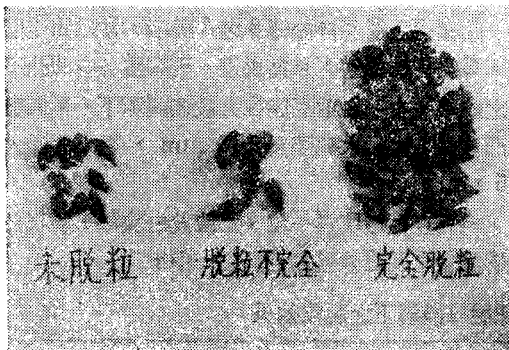 未脱粒
脱粒不完全
完全脱粒